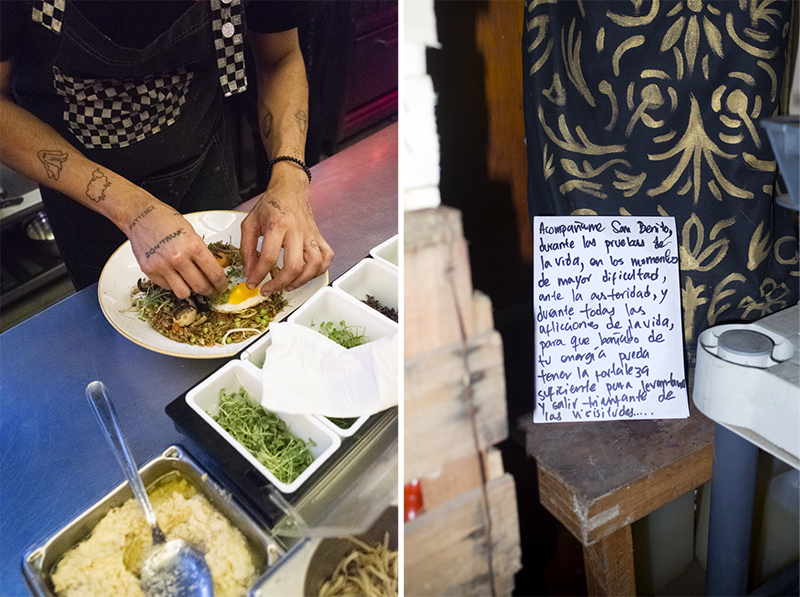 PATIENCE
DON'T PANIC
Acompáñame San Benito,
durante las pruebas de
la vida, en los momentos
de mayor dificultad,
ante la austeridad, y
durante todas las
aflicciones de la vida,
para que bañado de
tu energía pueda
tener la fortaleza
suficiente para levantarme
y salir triunfante de
las vicisitudes.....